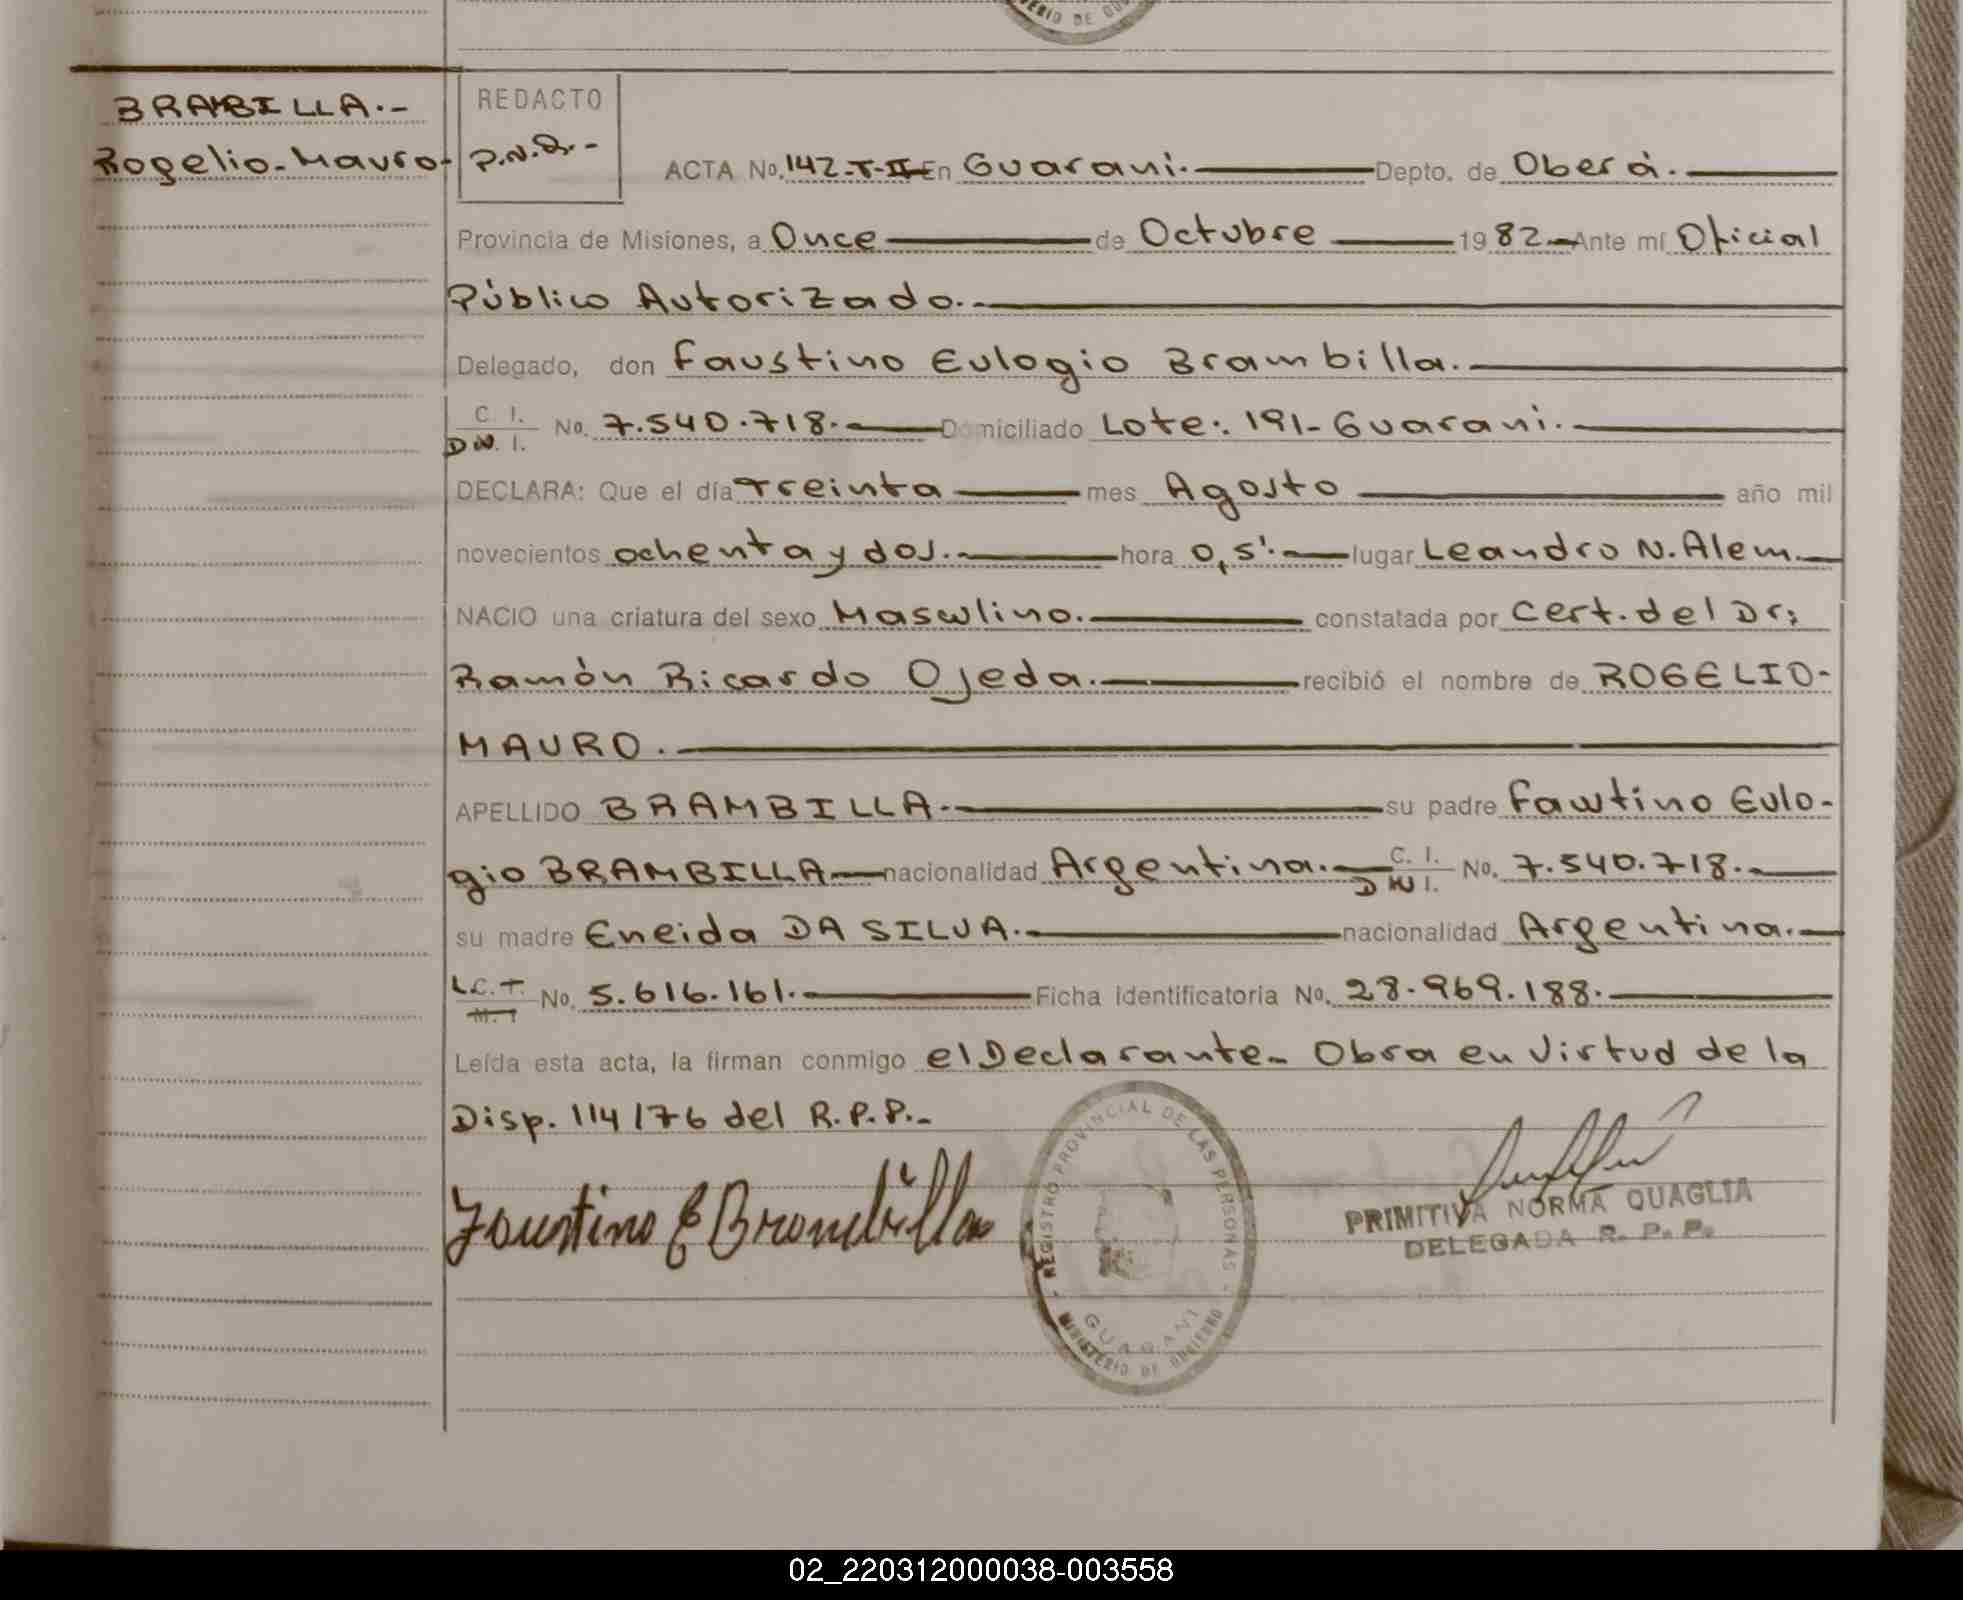 ERIO DE GO
BRAMBILLA.-
Rogelio-Mauro-
REDACTO
P.N.Q.-
ACTA No. 142-T-II- En Guarani. Depto. de Oberá.
Provincia de Misiones, a Once de Octubre 1982 Ante mí Oficial
Público Autorizado.
Delegado, don Faustino Eulogio Brambilla.
C. I.
DN. I. No. 7.540.718. Domiciliado Lote: 191-Guarani.
DECLARA: Que el día Treinta mes Agosto año mil
novecientos ochenta y dos. hora 0,5'. lugar Leandro N. Alem.
NACIO una criatura del sexo Masculino. constatada por Cert. del Dr:
Ramón Ricardo Ojeda. recibió el nombre de ROGELIO-
MAURO.
APELLIDO BRAMBILLA. su padre Faustino Eulo-
gio BRAMBILLA nacionalidad Argentina. C. I.
DN I. No. 7.540.718.
su madre Eneida DA SILVA. nacionalidad Argentina.
L.C. No. 5.616.161. Ficha Identificatoria No. 28.969.188.
Leída esta acta, la firman conmigo el Declarante- Obra en Virtud de la
Disp. 114/76 del R.P.P.-
Faustino E Brambilla
REGISTRO PROVINCIAL DE LAS PERSONAS
GUARANI
MINISTERIO DE GOBIERNO
PRIMITIVA NORMA QUAGLIA
DELEGADA R. P. P.
02_220312000038-003558